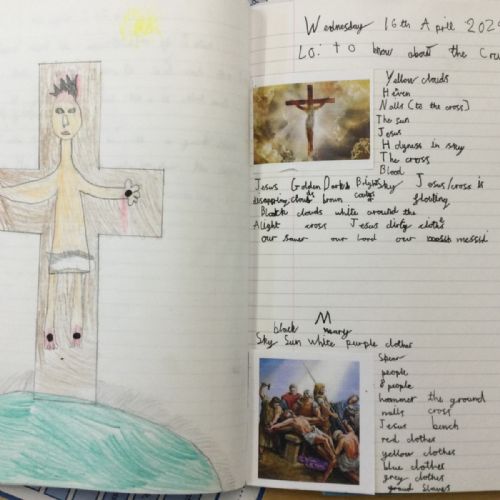 Wednesday 16th Aprill 202
LO: to know about the Cru
Yellow clouds
Heven
Nalls (to the cross)
The sun
Jesus
Holyness in sky
The cross
Blood
Jesus Golden Dark Bright sky Jesus/cross is
disapering clouds brown floating
Black clouds white around the
Alight cross Jesus dirty clothe
our saver our lord our messid
black M
meary
Sky Sun white purple clothes
Spear
people
8 people
hammer the ground
nalls cross
Jesus bench
red clothes
yellow clothes
blue clothes
grey clothes
ground Slaves